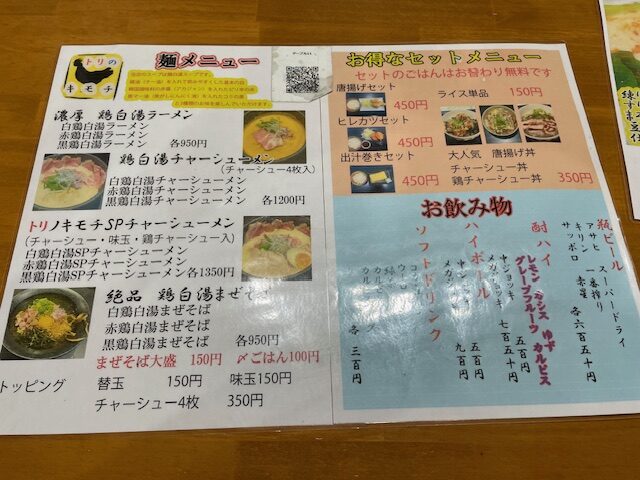 トリの
キモチ
麺メニュー
濃厚 鶏白湯ラーメン
白鶏白湯ラーメン
赤鶏白湯ラーメン
黒鶏白湯ラーメン 各950円
鶏白湯チャーシューメン
(チャーシュー4枚入)
白鶏白湯チャーシューメン
赤鶏白湯チャーシューメン
黒鶏白湯チャーシューメン 各1200円
トリノキモチSPチャーシューメン
(チャーシュー・味玉・鶏チャーシュー入)
白鶏白湯SPチャーシューメン
赤鶏白湯SPチャーシューメン
黒鶏白湯SPチャーシューメン 各1350円
絶品 鶏白湯まぜそば
白鶏白湯まぜそば
赤鶏白湯まぜそば
黒鶏白湯まぜそば 各950円
まぜそば大盛 150円 〆ごはん100円
トッピング 替玉 150円 味玉150円
チャーシュー4枚 350円
お得なセットメニュー
セットのごはんはお替わり無料です
唐揚げセット
450円
ヒレカツセット
450円
出汁巻きセット
450円
ライス単品 150円
大人気 唐揚げ丼
チャーシュー丼
鶏チャーシュー丼 350円
お飲み物
瓶ビール
アサヒ スーパードライ
キリン 一番搾り
サッポロ 赤星
各六百五十円
酎ハイ
レモン ゆず
グレープフルーツ カルピス
中ジョッキ 五百円
メガジョッキ 七百五十円
ハイボール
中ジョッキ 五百円
メガジョッキ 九百円
ソフトドリンク
各三百円